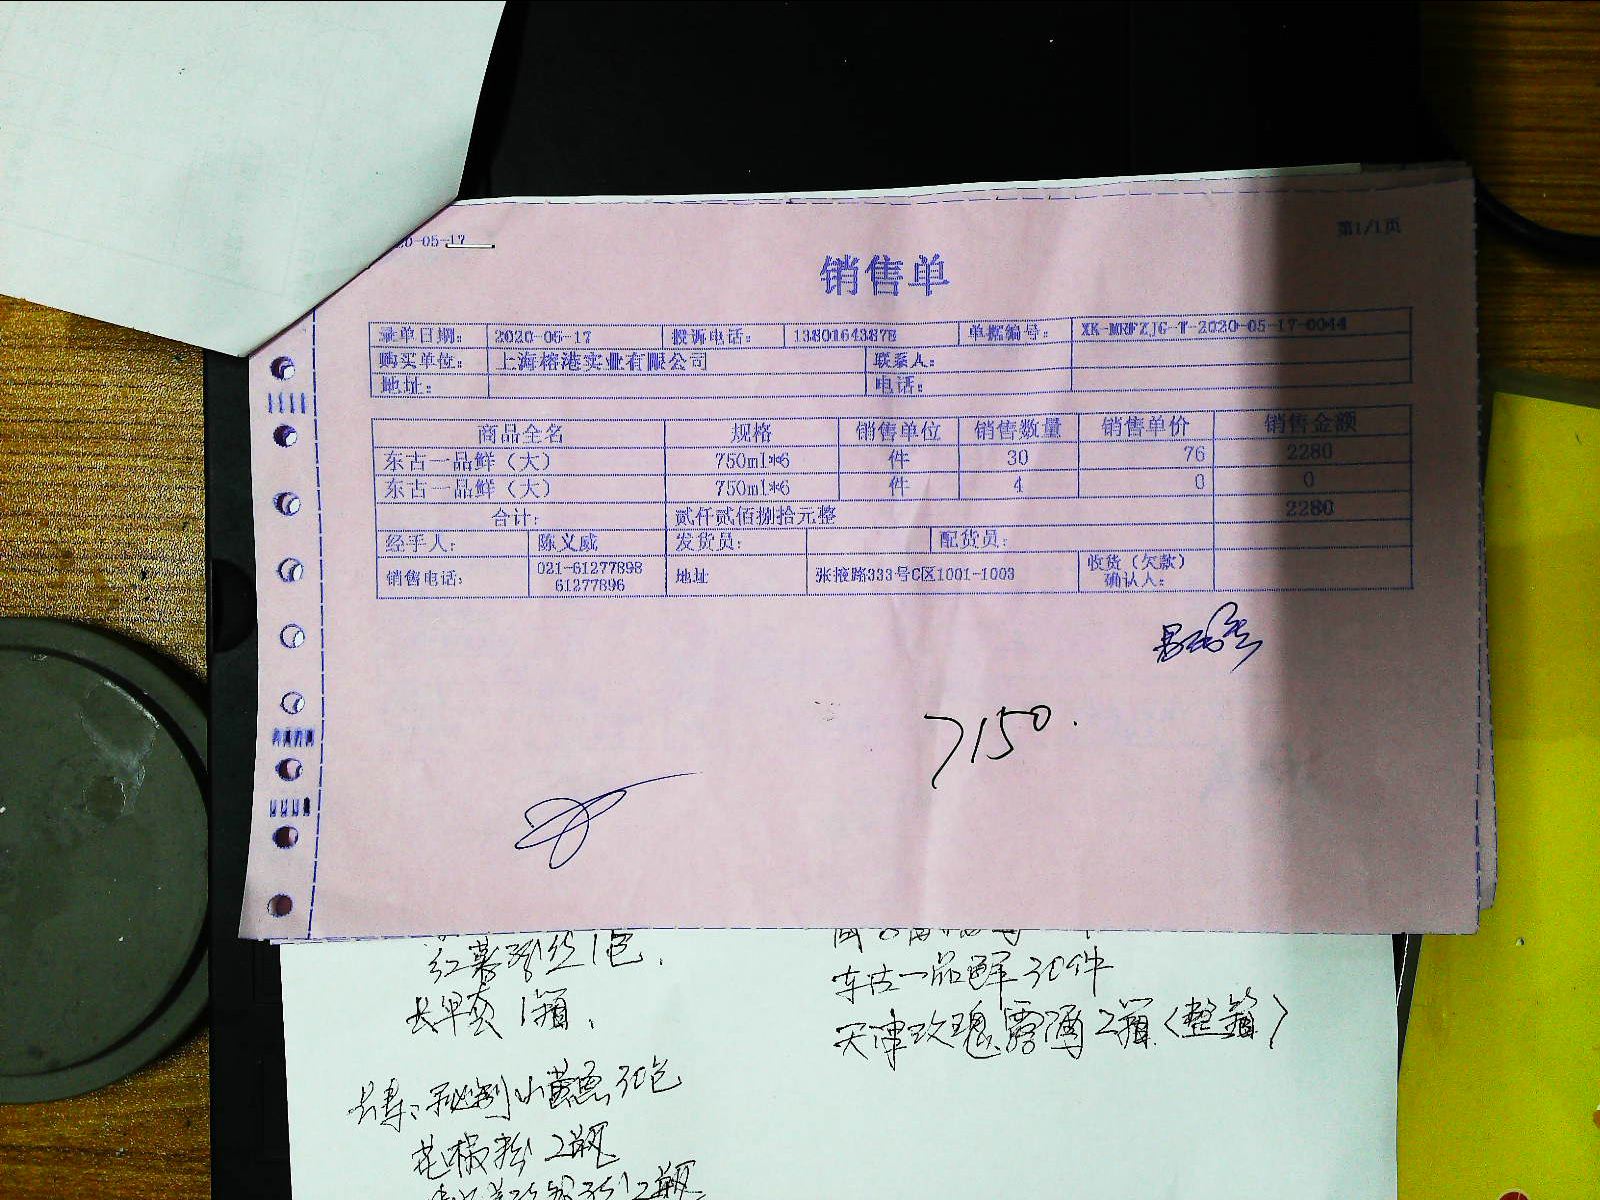 20-05-17
第1/1页
销售单
录单日期: 2020-05-17 投诉电话: 13801643878 单据编号: XK-MRFZJG-T-2020-05-17-0044
购买单位: 上海榕港实业有限公司 联系人:
地址: 电话:
商品全名 规格 销售单位 销售数量 销售单价 销售金额
东古一品鲜（大） 750ml*6 件 30 76 2280
东古一品鲜（大） 750ml*6 件 4 0 0
合计: 贰仟贰佰捌拾元整 2280
经手人: 陈义威 发货员: 配货员:
销售电话: 021-61277898 61277896 地址 张掖路333号C区1001-1003 收货（欠款）确认人:
7150.
1包.
东古一品鲜 30件
1箱.
天津玫瑰露酒 2箱（整箱）
秘制小黄鱼 30包
花椒粉 2瓶
2瓶